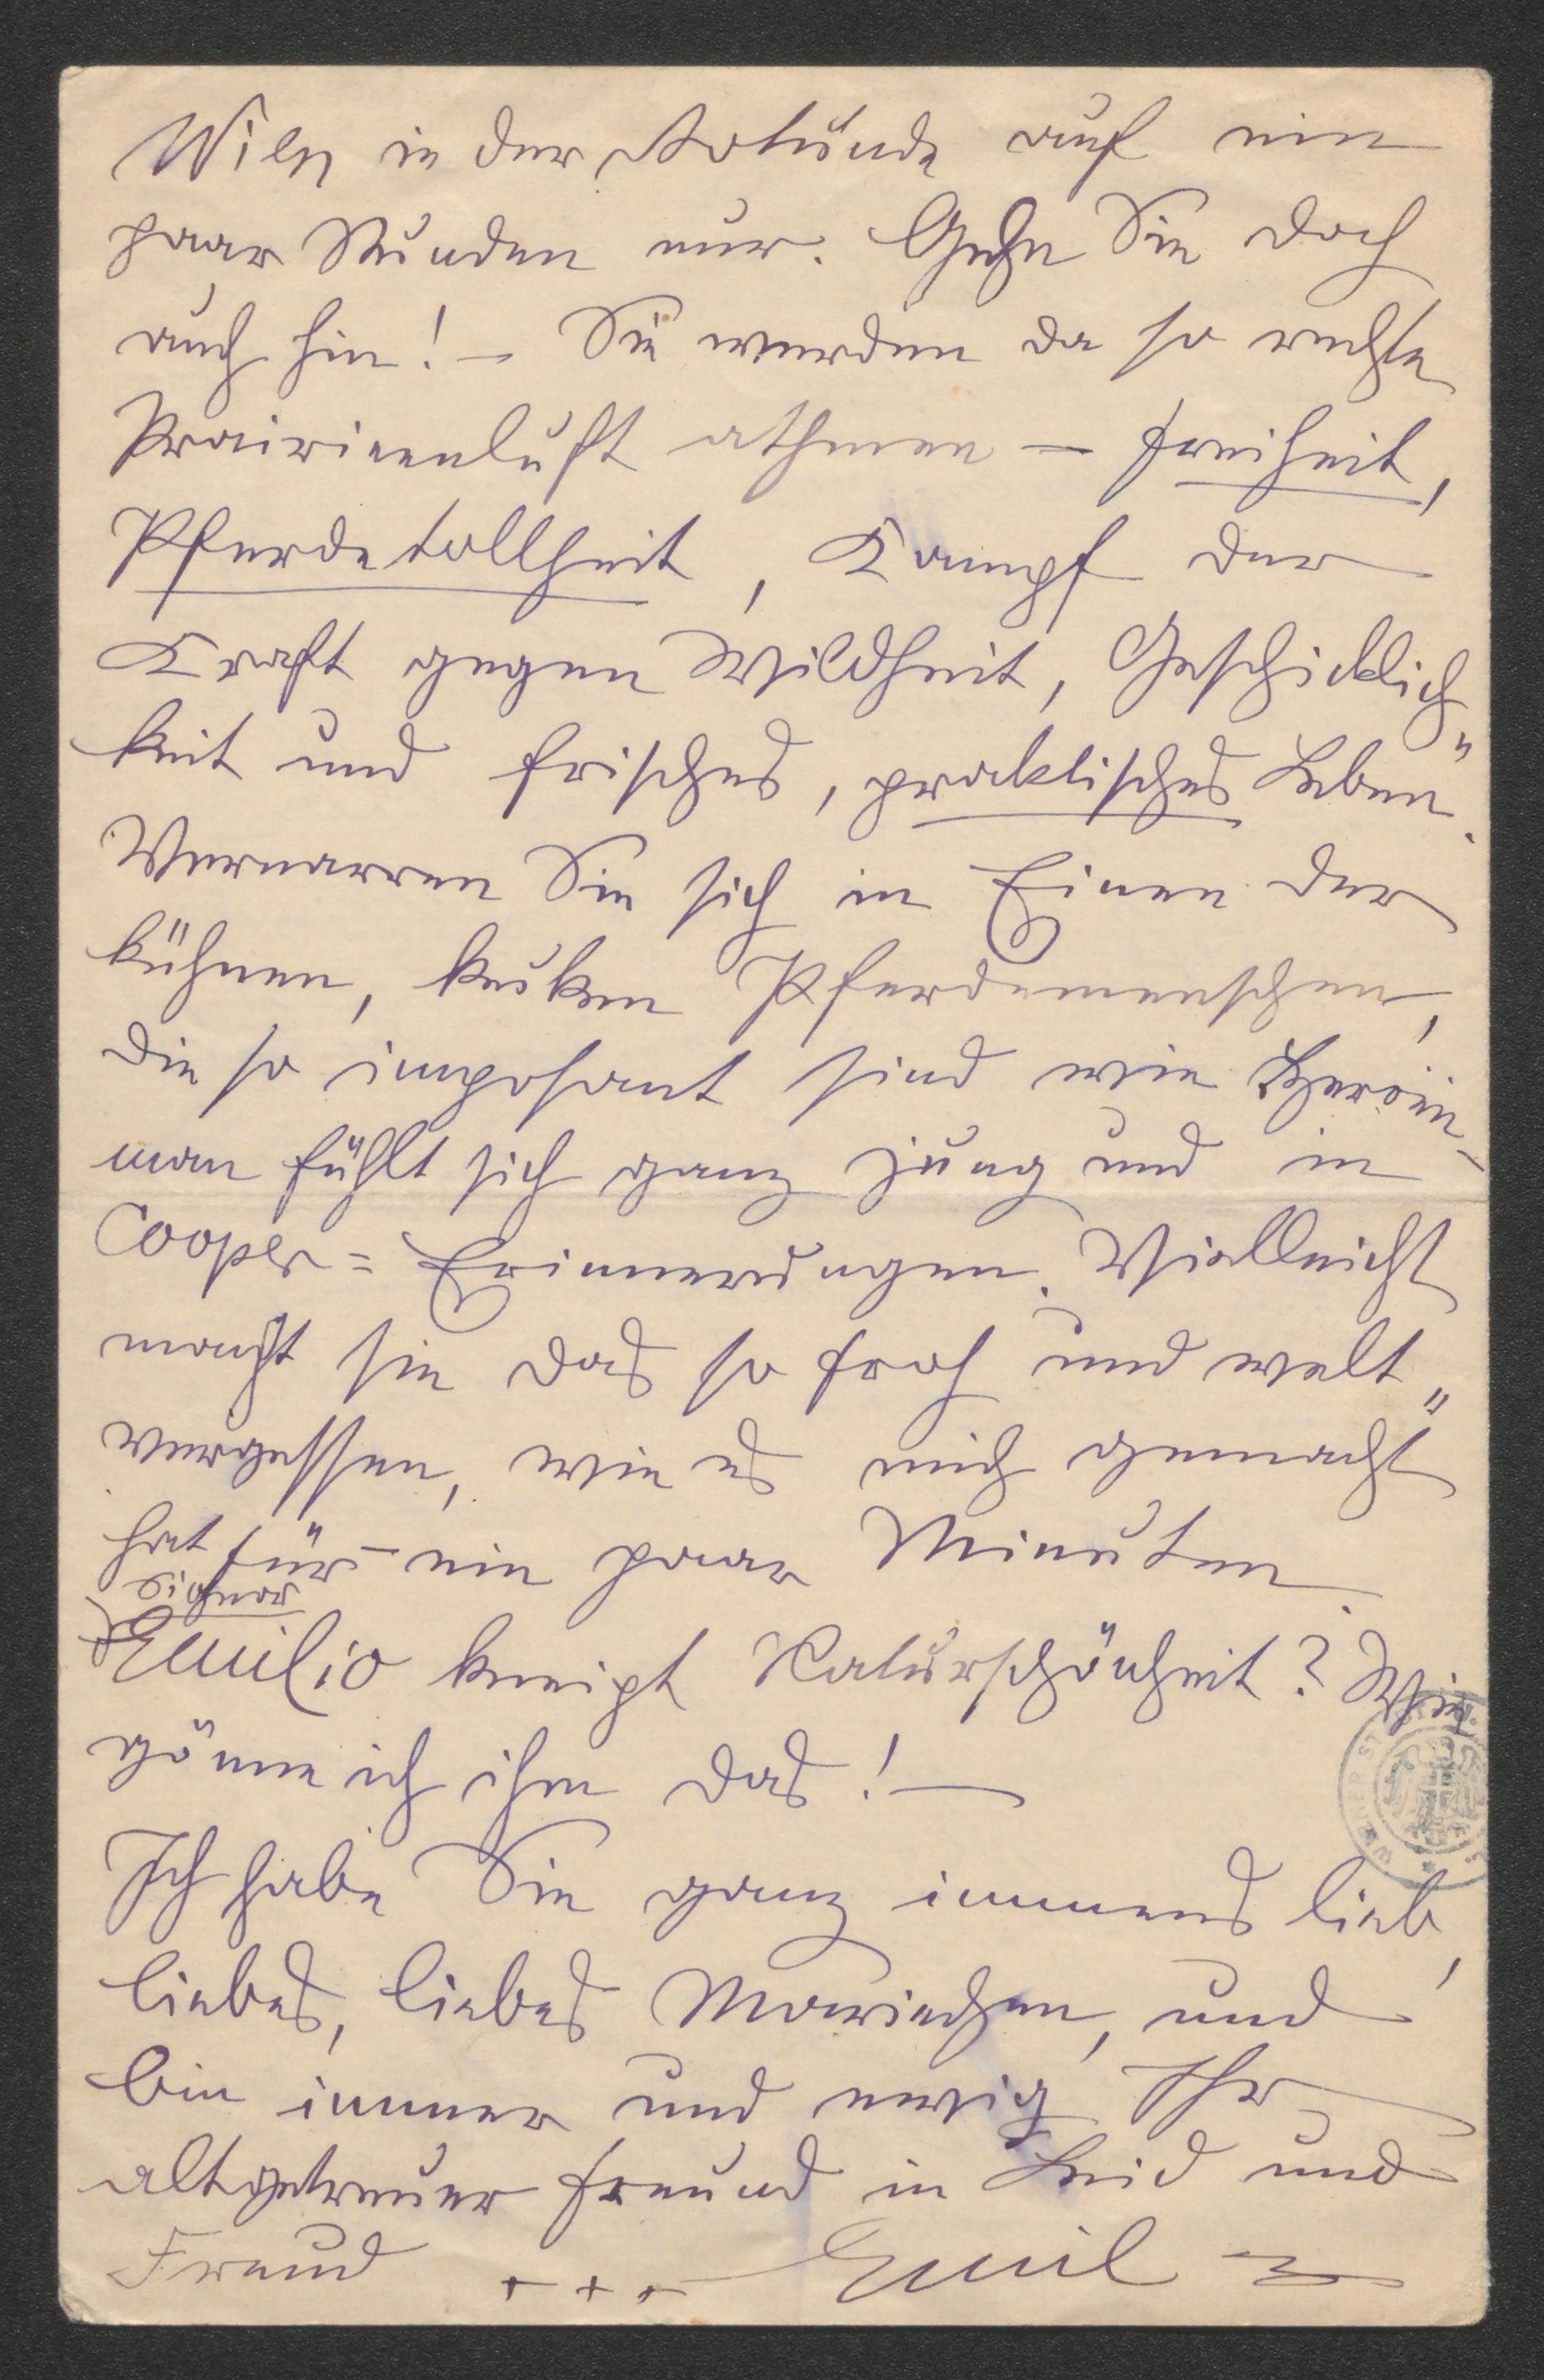 Wien in der Rotunde auf ein
paar Stunden nur. Gehn Sie doch
auch hin! – Sie werden da so rechte
Prairieenluft athmen – Freiheit,
Pferdetollheit, Kampf der
Kraft gegen Wildheit, Geschicklich"
keit und frisches, praktisches Leben.
Vernarren Sie sich in Einen der
kühnen, kecken Pferdemenschen,
die so imposant sind wie Heroën –
man fühlt sich ganz jung und in
Cooper=Erinnerungen. Vielleicht
macht sie das so froh und welt"
vergessen, wie es mich gemacht
hat für – ein paar Minuten.
Signor
Emilio kneipt Naturschönheit? Wie
gönne ich ihm das! –
Ich habe Sie ganz immens lieb,
liebes, liebes Mariechen, und
bin immer und ewig Ihr
altgetreuer Freund in Leid und
Freud + + + Emil
WIENER ST